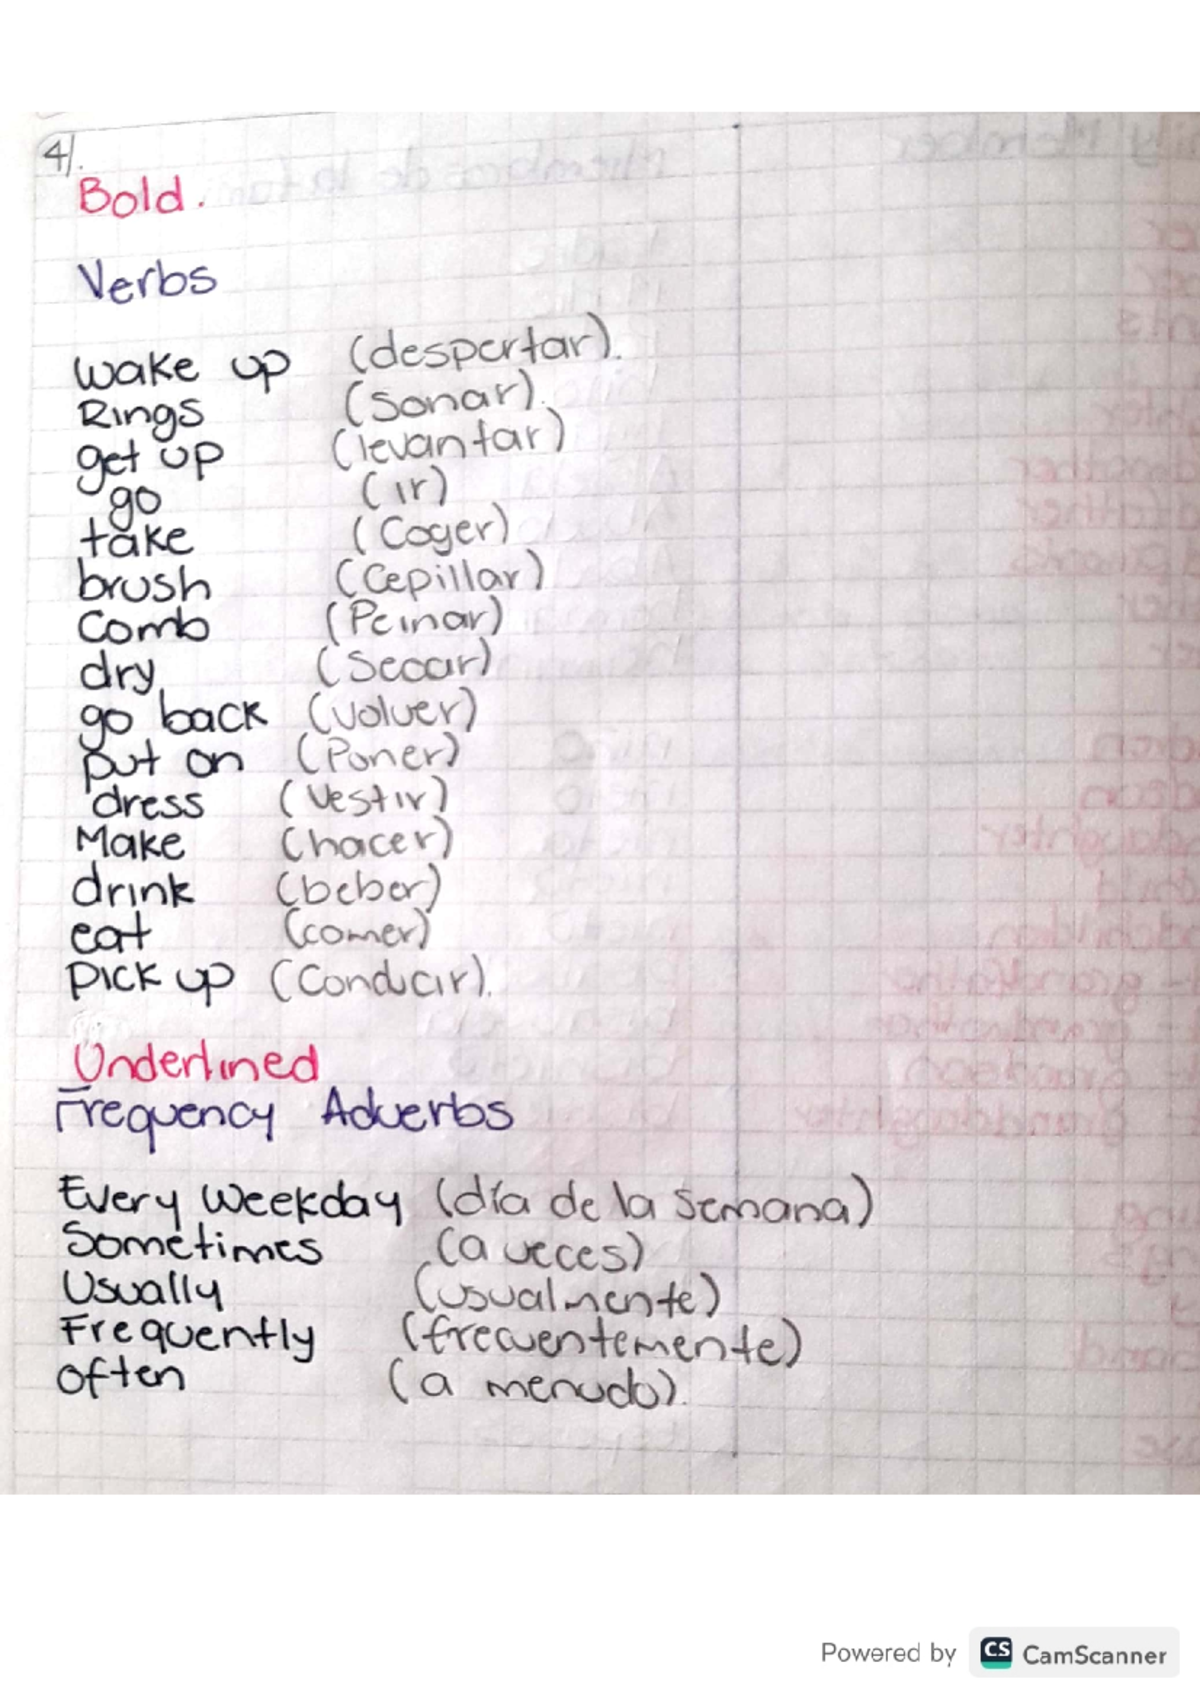 4/.
Bold.
Verbs
wake up (despertar).
Rings (Sonar).
get up (levantar)
go (ir)
take (Coger)
brush (Cepillar)
Comb (Peinar)
dry (Secar)
go back (volver)
put on (Poner)
dress (Vestir)
Make (hacer)
drink (beber)
eat (comer)
Pick up (Conducir).
Underlined
Frequency Adverbs
Every Weekday (día de la semana)
Sometimes (a veces)
Usually (usualmente)
Frequently (frecuentemente)
often (a menudo).
Powered by CS CamScanner